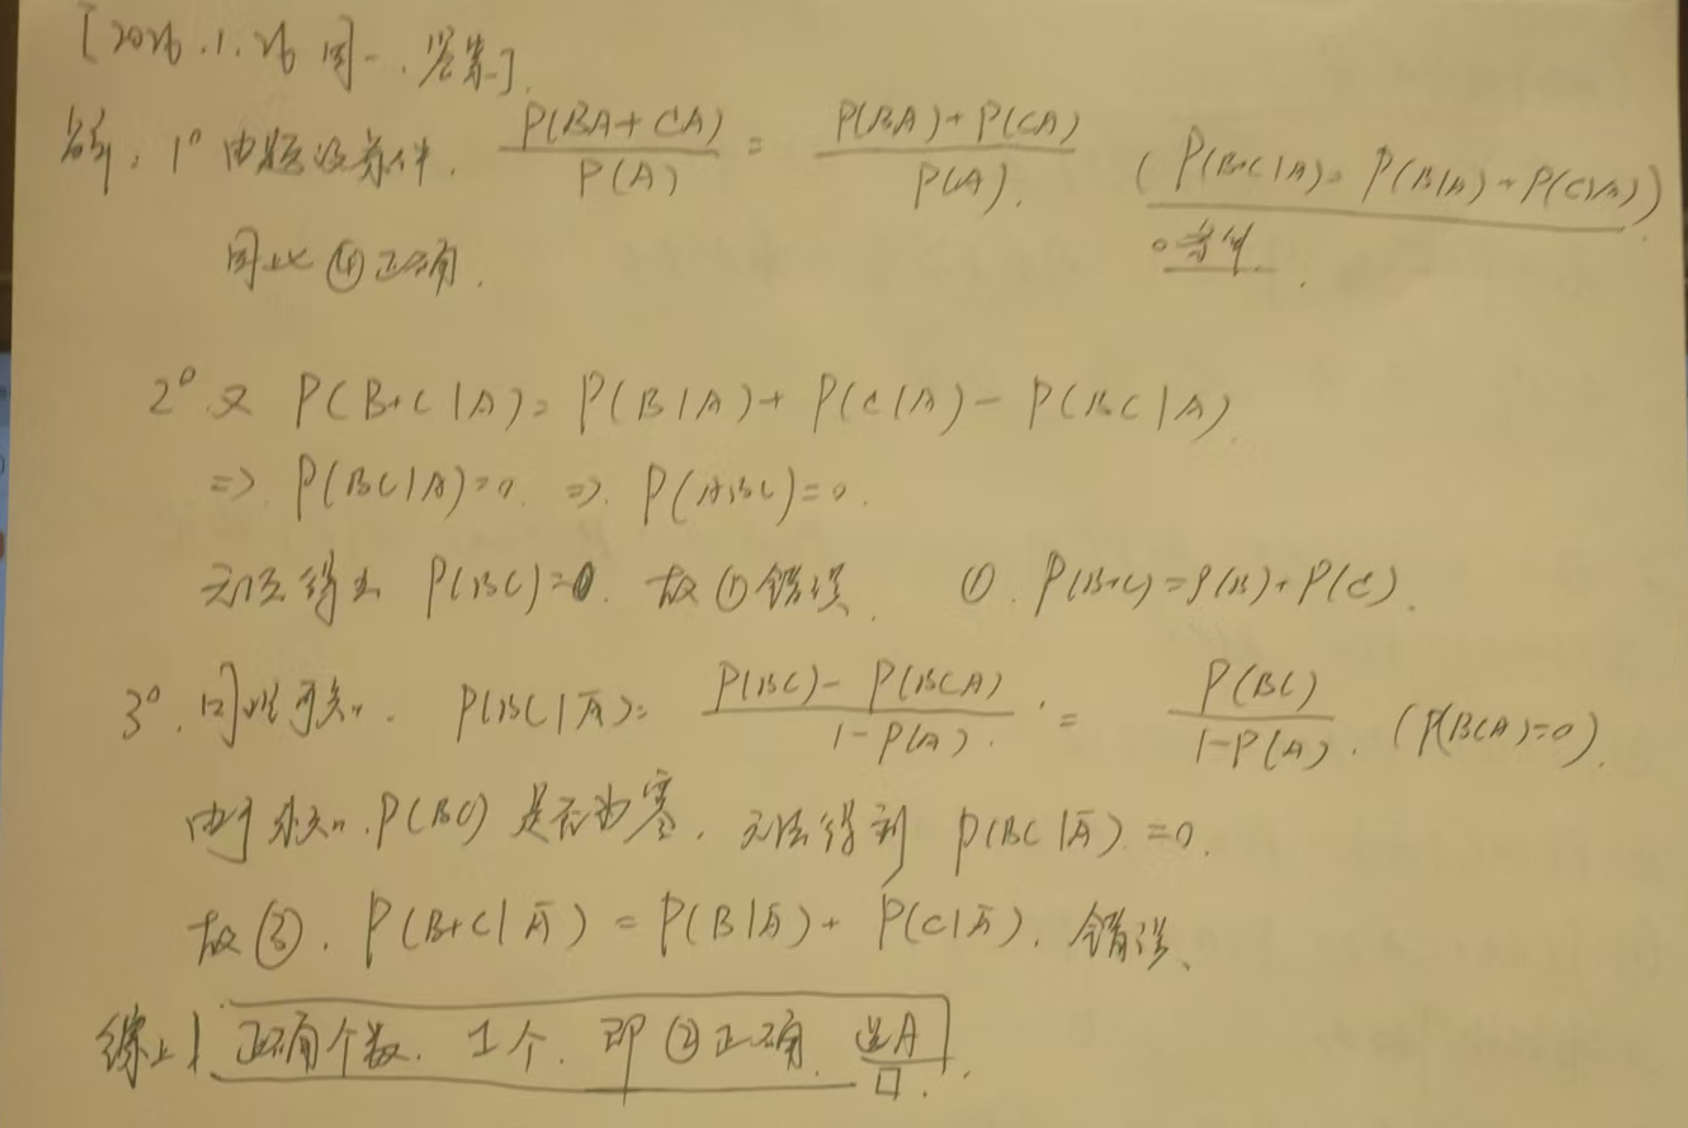 [2026.1.26 周一. 答案].
解: 1° 由题设条件. P(BA+CA)/P(A) = P(BA)+P(CA)/P(A). (P(B+C|A)=P(B|A)+P(C|A)).
条件.
因此 正确.
2° 又 P(B+C|A)=P(B|A)+P(C|A)-P(BC|A).
⇒ P(BC|A)=0. ⇒ P(ABC)=0.
无法得出 P(BC)=0. 故①错误. ①. P(B+C)=P(B)+P(C).
3°. 同理可知. P(BC|Ā)= P(BC)-P(BCA)/1-P(A). = P(BC)/1-P(A). (P(BCA)=0).
由于未知.P(BC)是否为零. 无法得到 P(BC|Ā)=0.
故③. P(B+C|Ā)=P(B|Ā)+P(C|Ā). 错误.
综上 正确个数. 1个. 即②正确. 选A
□.